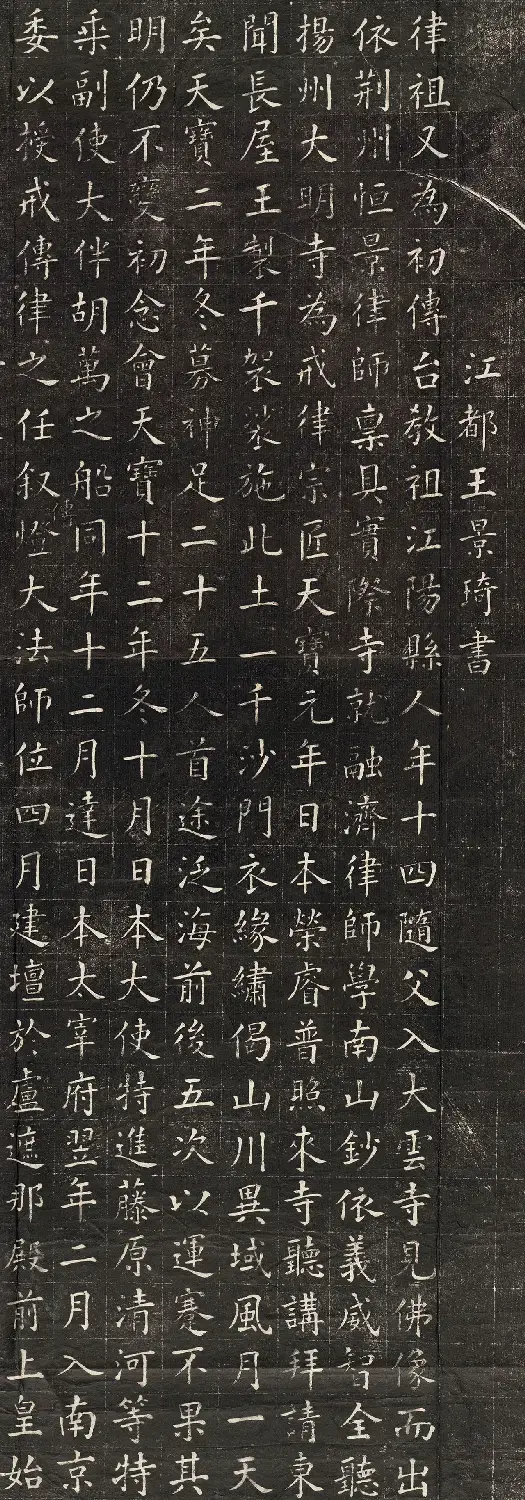 江都王景琦書
律祖又為初傳台教祖江陽縣人年十四隨父入大雲寺見佛像而出
依荆州恒景律師稟具實際寺就融濟律師學南山鈔依義威智全聽
揚州大明寺為戒律宗匠天寶元年日本榮睿普照來寺聽講拜請東
聞長屋王製千袈裟施此土一千沙門衣緣繡偈山川異域風月一天
矣天寶二年冬募神足二十五人首途泛海前後五次以運蹇不果其
明仍不變初念會天寶十二年冬十月日本大使特進藤原清河等特
乘副使大伴胡萬之船同年十二月達日本太宰府翌年二月入南京
委以授戒傳律之任叙傳燈大法師位四月建壇於盧遮那殿前上皇始